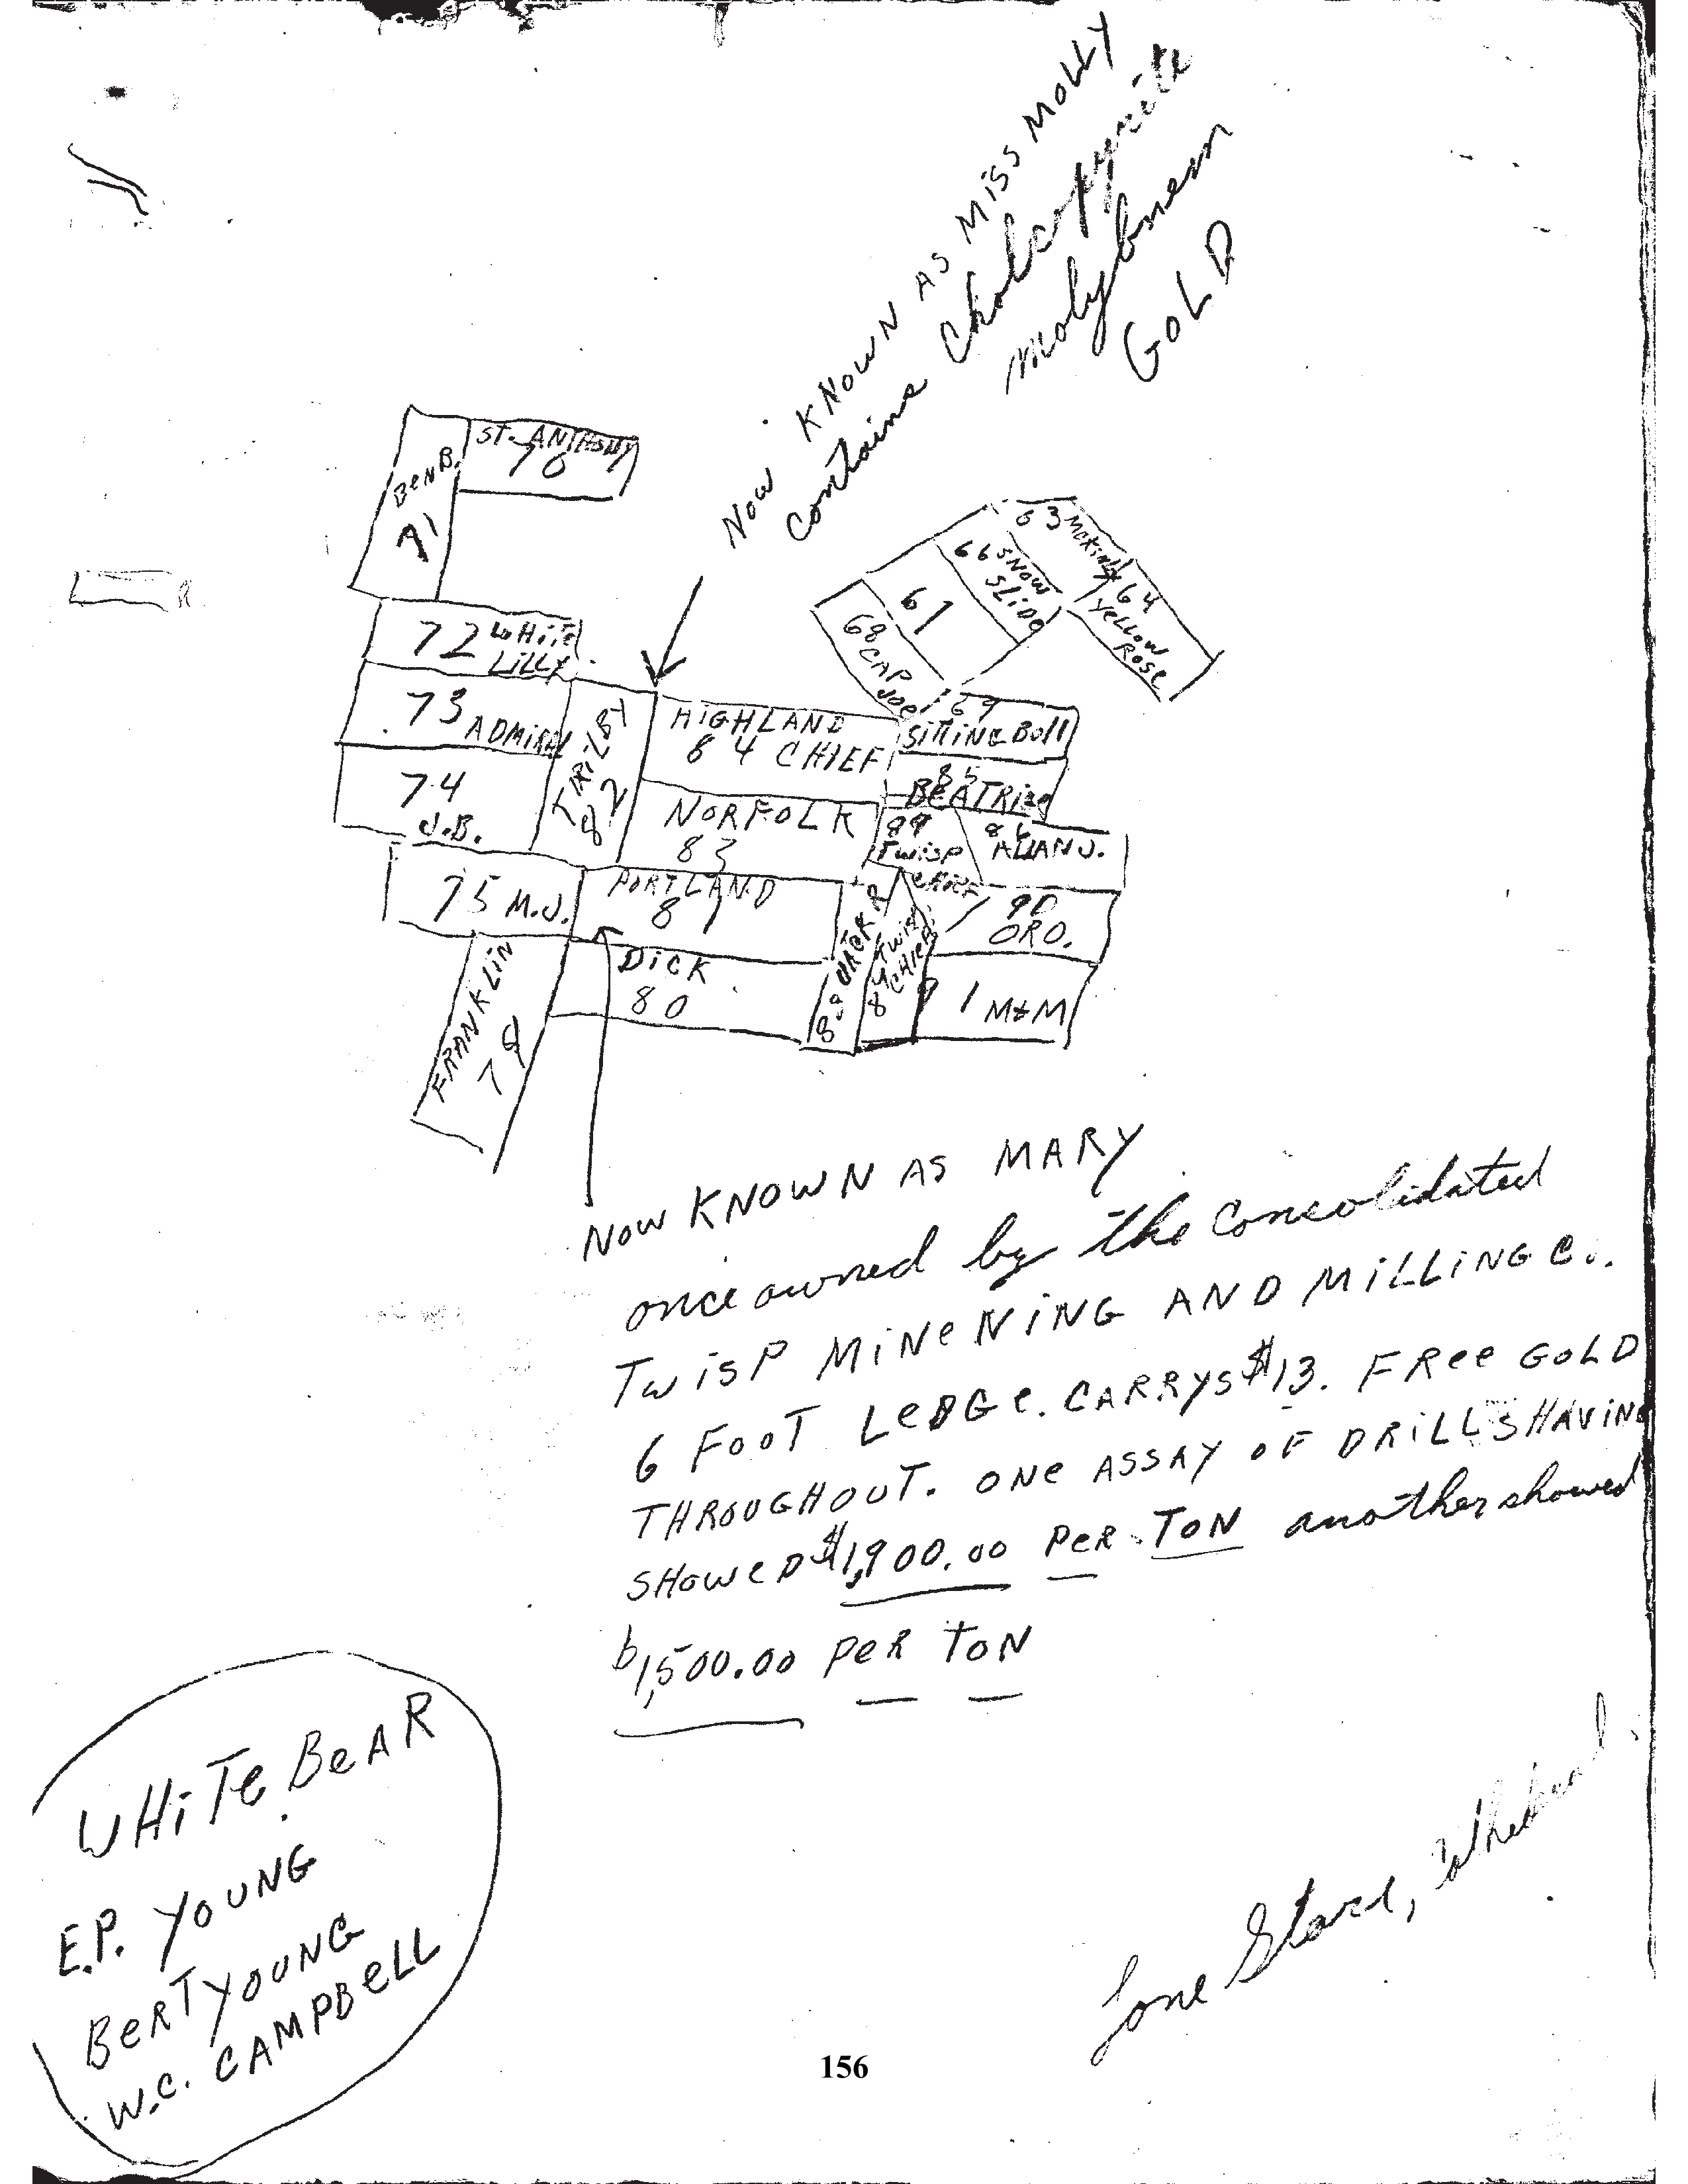 NOW KNOWN AS MISS MOLLY
Contains Chalcopyrite
Molybnem
GOLD
ST. ANTHONY
70
BeN B.
71
72 WHiTe
LiLLY
73 ADMiRAL
74
J.B.
75 M.J.
TRILBY
82
HIGHLAND
84 CHIEF
NORFOLK
83
PORTLAND
87
DiCK
80
FRANKLiN
78
63 MCKINLY
64
YeLLOW
ROSe
66 SNOW
SLiDe
61
68 CAP
JOE
69
SiTTiNG Bull
85
BeATRice
89
TWiSP
86
ALLAN J.
90
ORO.
91 M&M
88 JACK R
89 TWiSP
CHIEF
NOW KNOWN AS MARY
once owned by the Consolidated
TWiSP MiNeNiNG AND MiLLiNG Co.
6 FOOT LeDGe. CARRYS $13. FRee GOLD
THROUGHOUT. ONe ASSAY OF DRiLLSHAViNG
SHOWeD $1,900.00 PeR TON another showed
$1,500.00 PeR TON
WHiTe BeAR
E.P. YOUNG
BeRT YOUNG
W.C. CAMPBeLL
Lone Star,
156